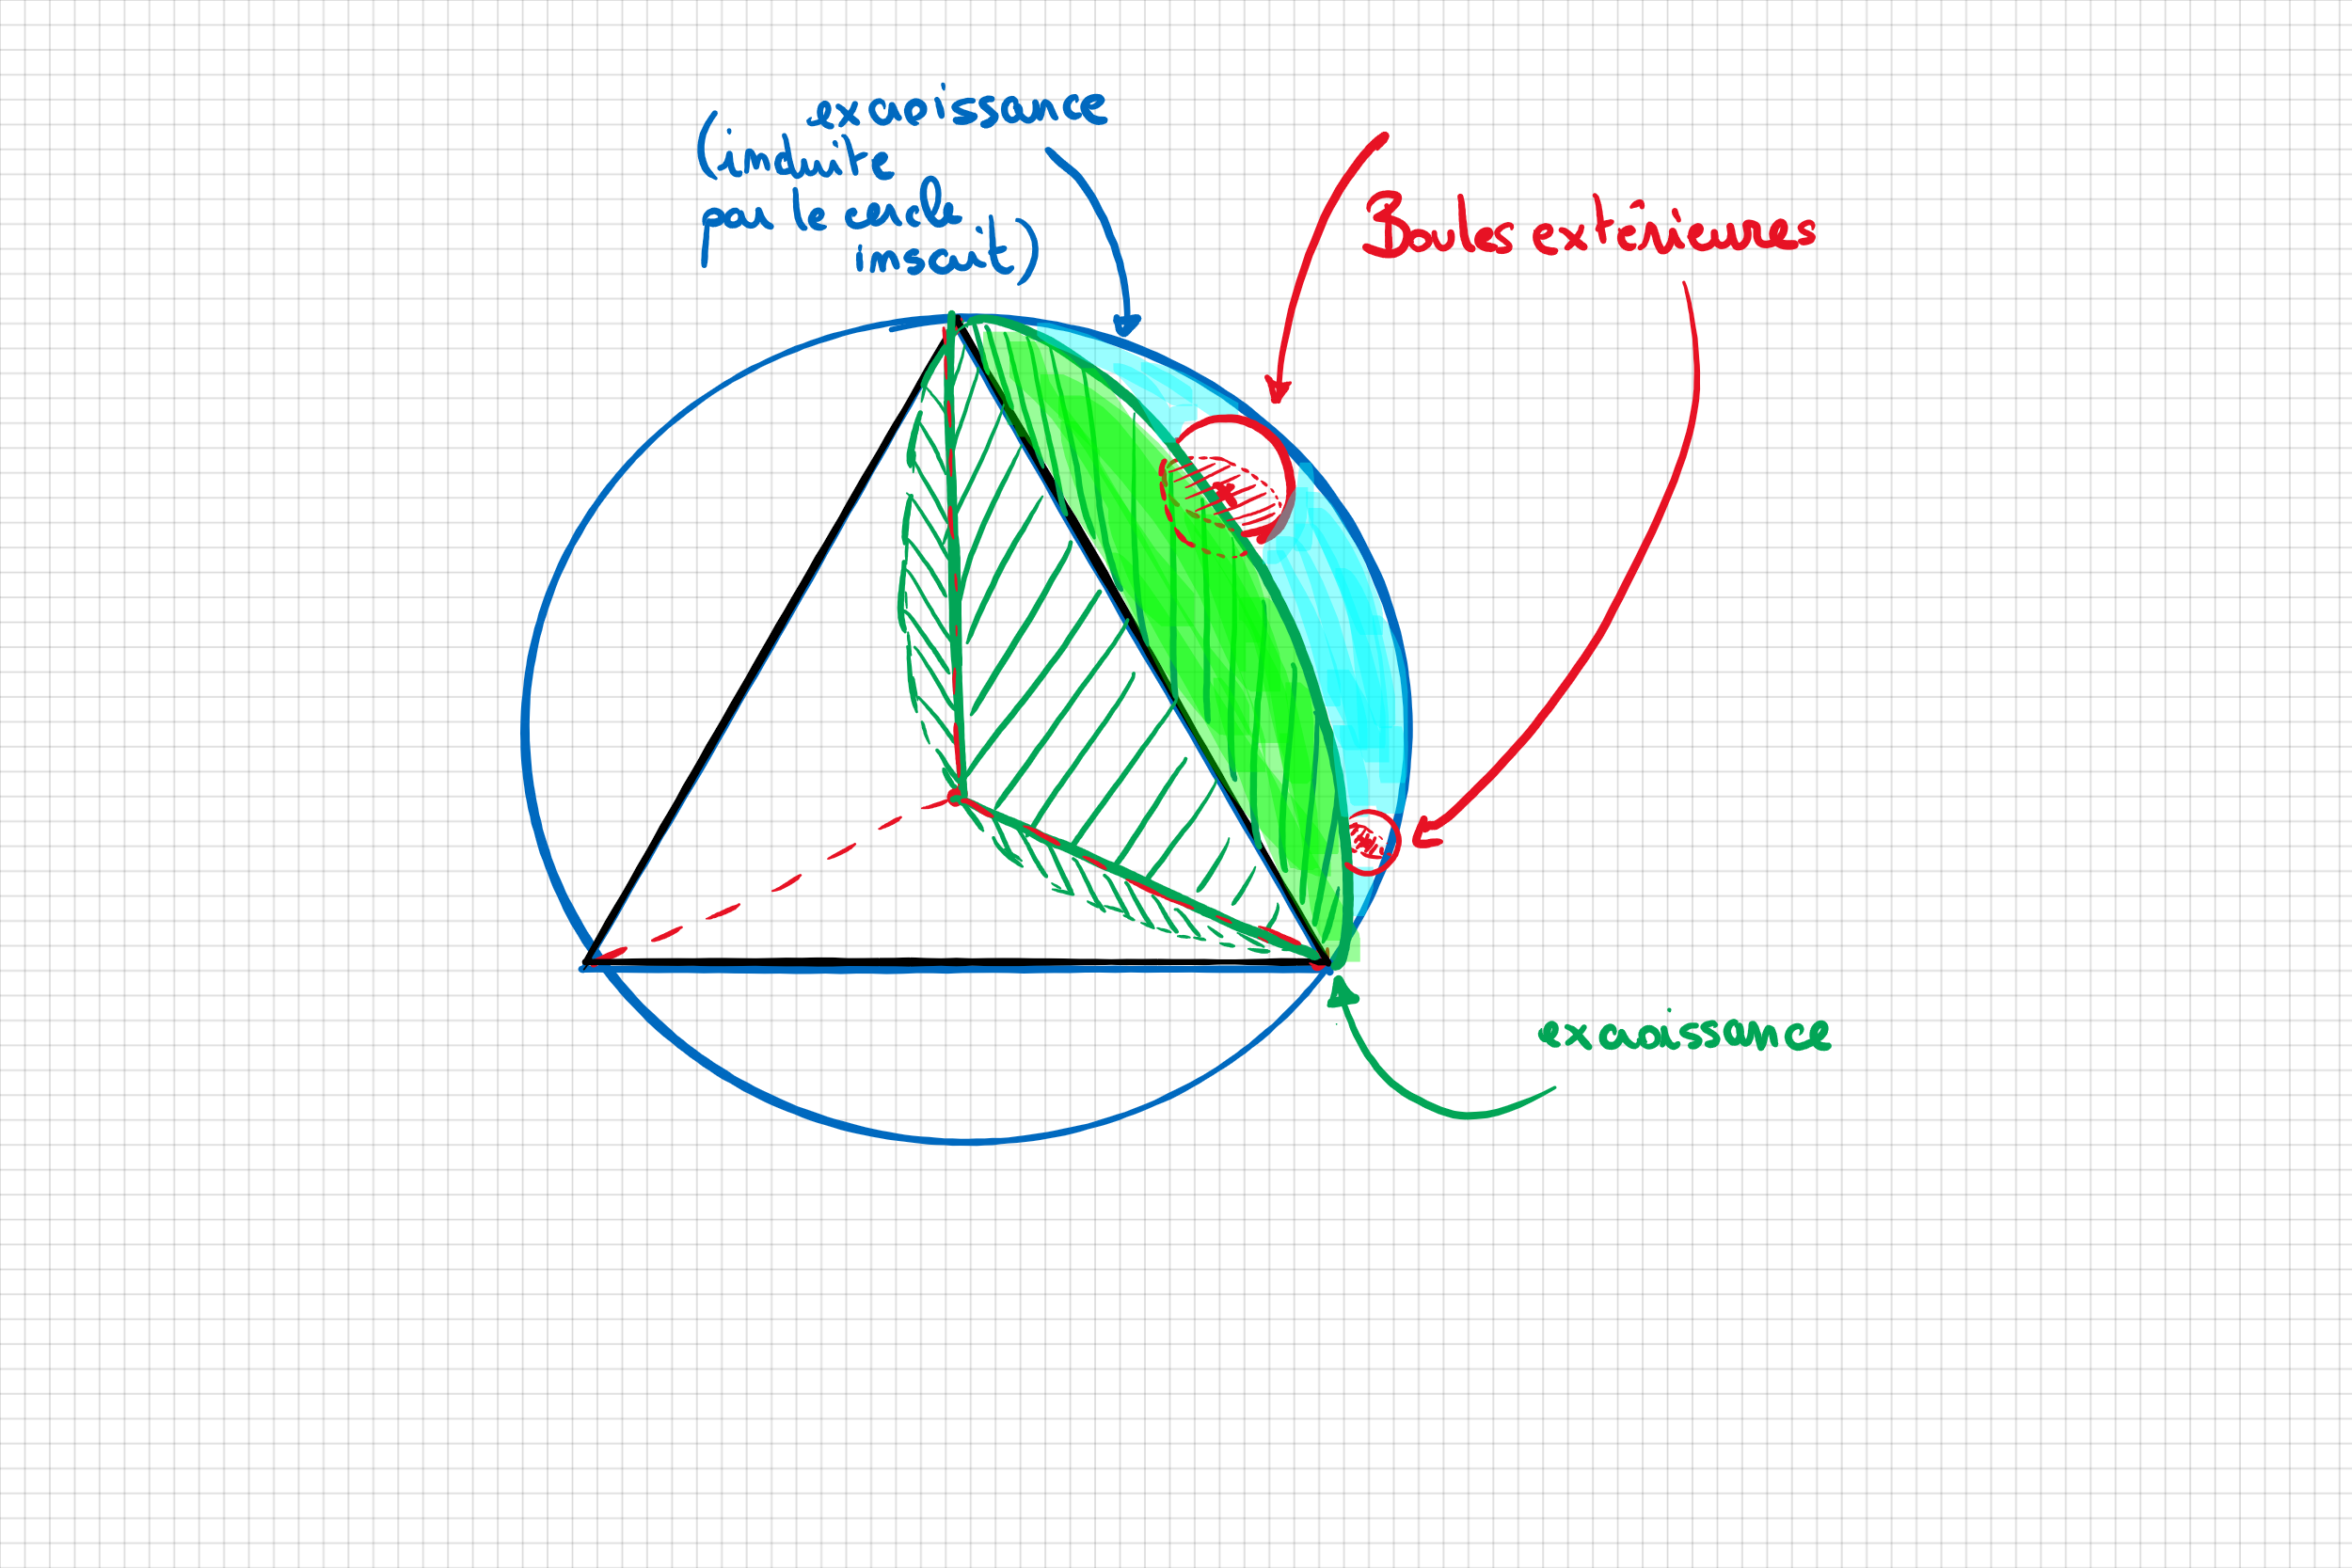 excroissance
(induite
par le cercle
inscrit)
Boules extérieures
excroissance